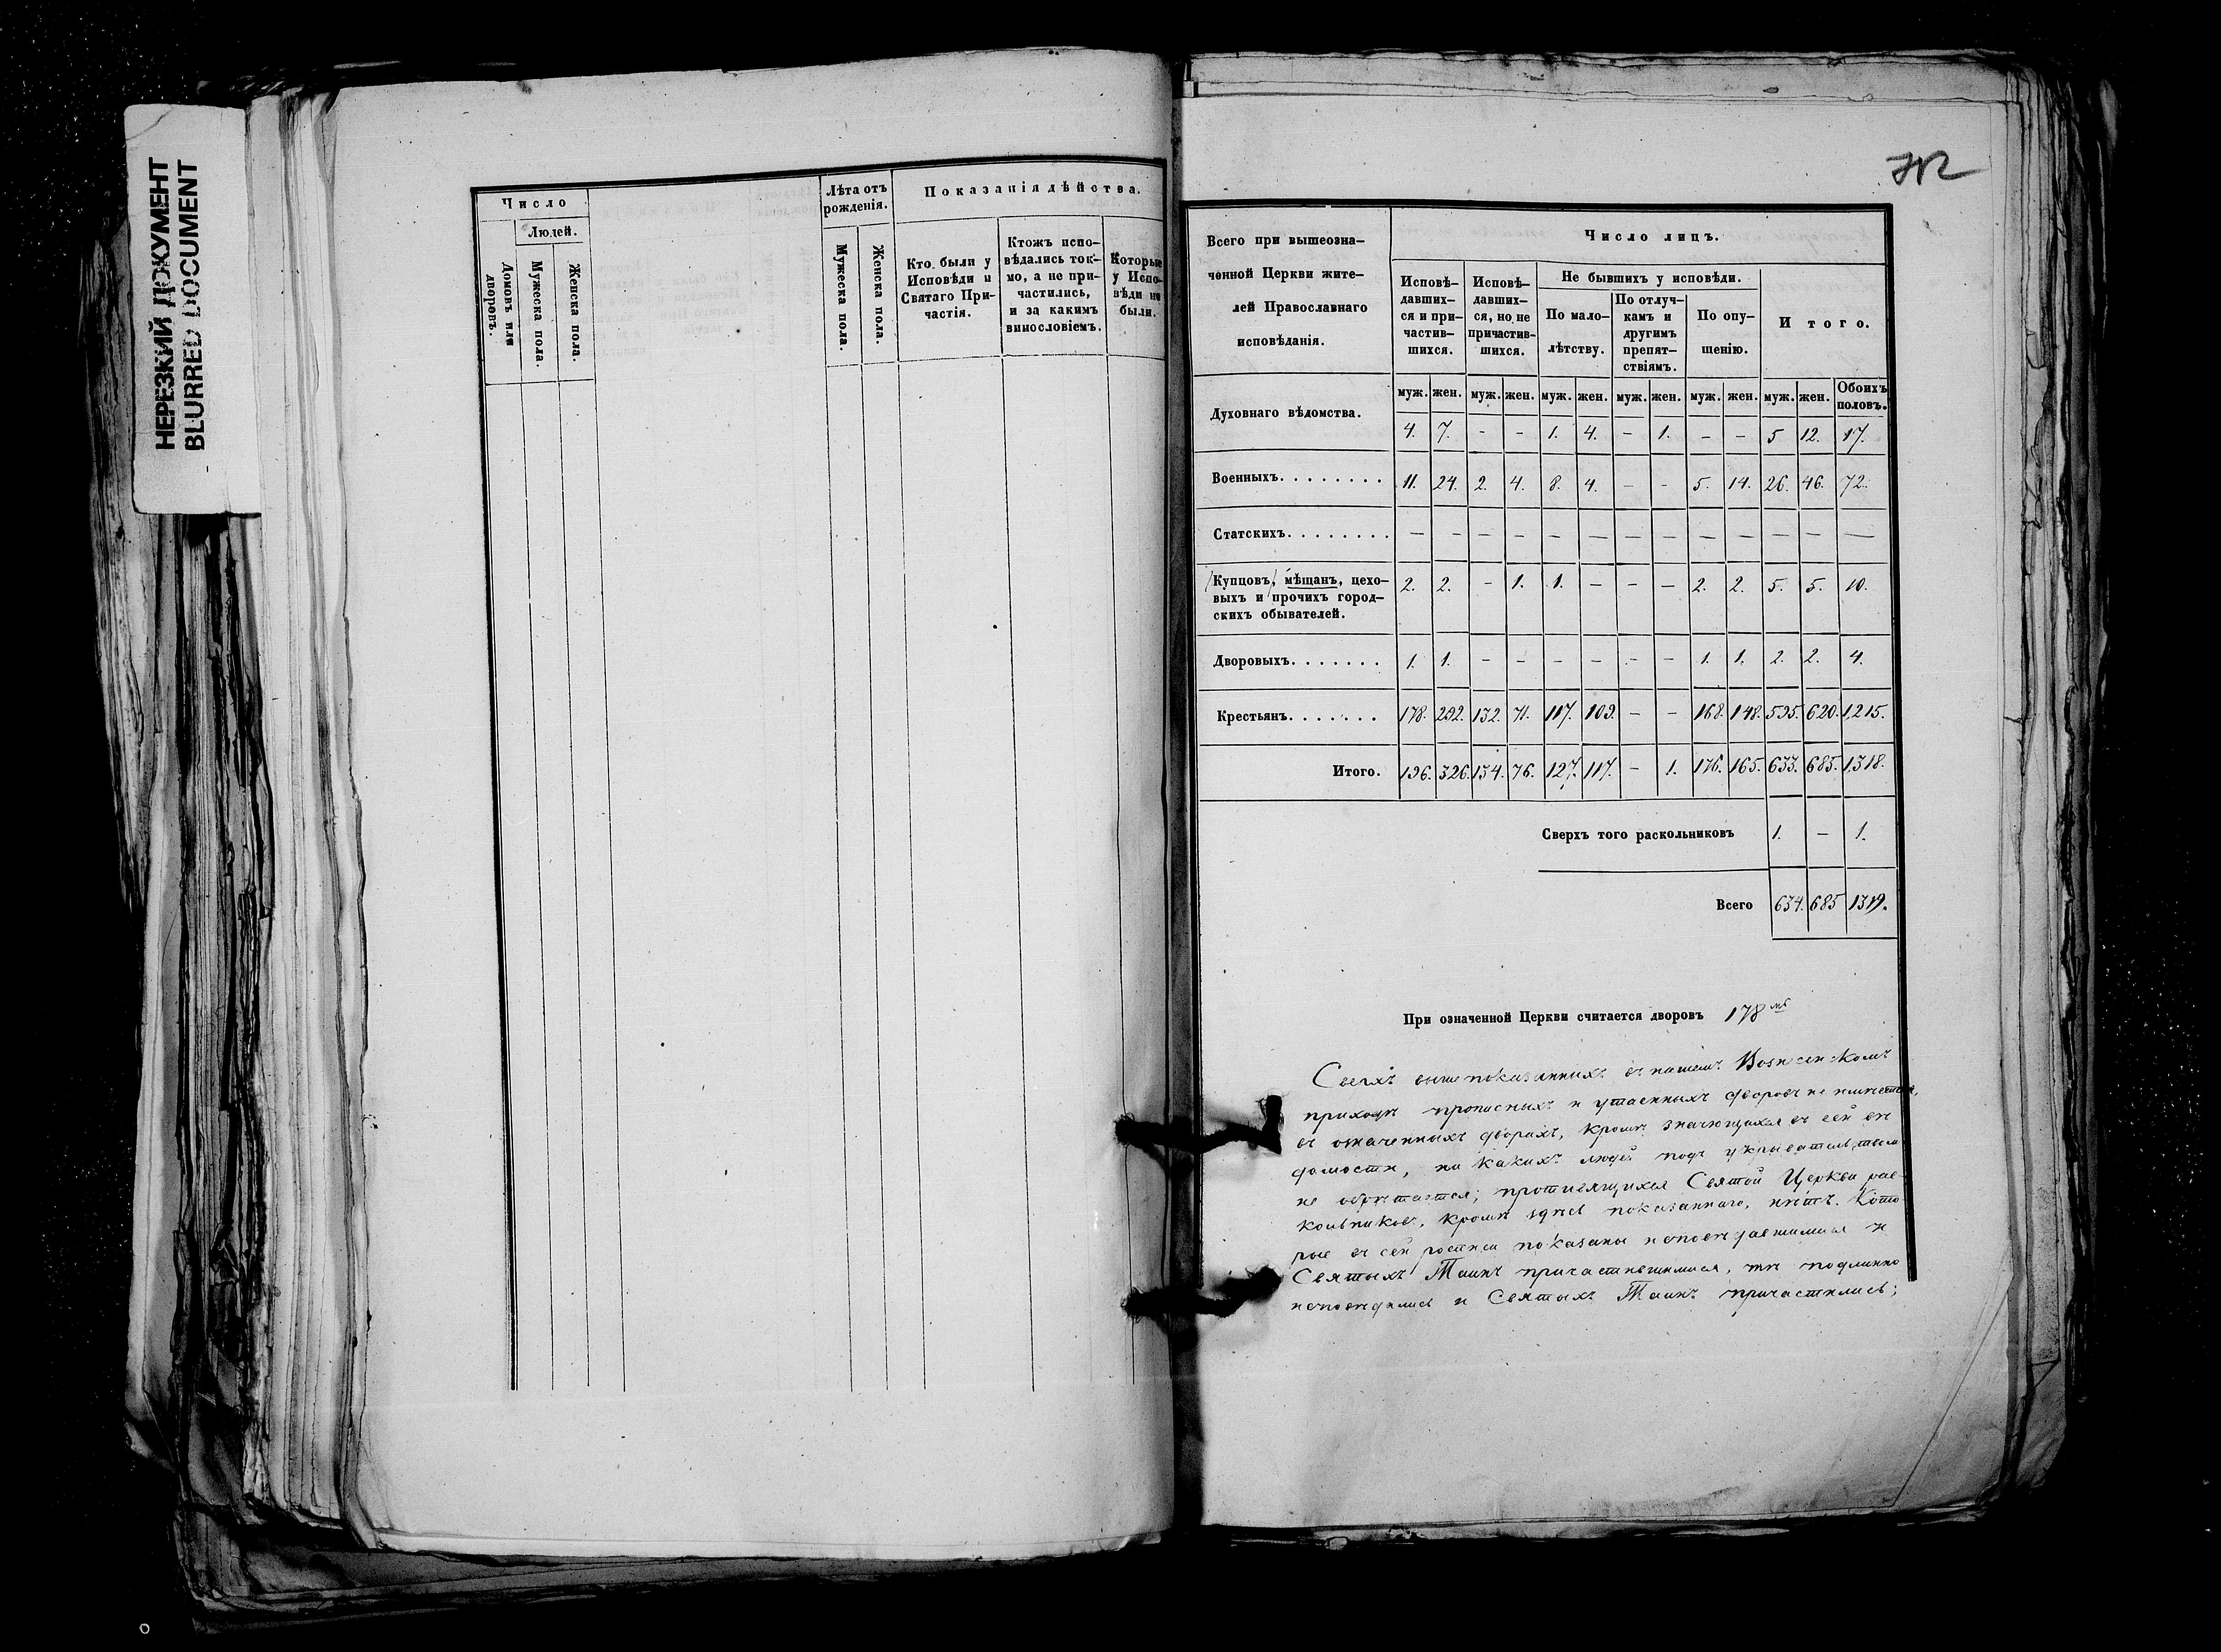 НЕРЕЗКИЙ ДОКУМЕНТ
BLURRED DOCUMENT
Число
Людей.
Домовъ или дворовъ.
Мужеска пола.
Женска пола.
Лѣта отъ рожденія.
Мужеска пола.
Женска пола.
Показанія дѣйства.
Кто были у Исповѣди и Святаго При-частія.
Ктожъ испо-вѣдались ток-мо, а не при-частились, и за какимъ винословіемъ.
Которые у Испо-вѣди не были.
Всего при вышеозна-
ченной Церкви жите-
лей Православнаго
исповѣданія.
Число лицъ.
Исповѣ-давших-ся и при-частив-шихся.
Исповѣ-давших-ся, но не причастив-шихся.
Не бывшихъ у исповѣди.
По мало-лѣтству.
По отлуч-камъ и другимъ препят-ствіямъ.
По опу-щенію.
Итого.
муж. жен. муж. жен. муж. жен. муж. жен. муж. жен. муж. жен. Обоихъ половъ.
Духовнаго вѣдомства. 4. 7. - - 1. 4. - 1. - - 5 12. 17.
Военныхъ. . . . . . . . 11. 24. 2. 4. 8. 4. - - 5. 14. 26. 46. 72.
Статскихъ. . . . . . . . — - - - - — — — — — — — —
Купцовъ, мѣщанъ, цехо-
выхъ и прочихъ город-
скихъ обывателей. 2. 2. - 1. 1. - - - 2. 2. 5. 5. 10.
Дворовыхъ. . . . . . . 1. 1. - - - - - - 1. 1. 2. 2. 4.
Крестьянъ. . . . . . . 178. 292. 132. 71. 117. 109. - - 168. 148. 595. 620. 1,215.
Итого. 196. 326. 134. 76. 127. 117. - 1. 176. 165. 633. 685. 1,318.
Сверхъ того раскольниковъ 1. - 1.
Всего 634. 685 1319.
При означенной Церкви считается дворовъ 178
Сверхъ вышепоказанныхъ въ нашемъ Вознесенскомъ
приходѣ прописныхъ и утаенныхъ дворовъ не имѣется,
въ означенныхъ дворахъ, кромѣ значющихся въ сей вѣ
домости, ни какихъ людей подъ укрывательствомъ
не обрѣтается; противящихся Святой Церкви рас
кольниковъ, кромѣ здѣсь показаннаго, нѣтъ. Кото
рые въ сей росписи показаны исповѣдавшимися и
Святыхъ Таинъ причастившимися, тѣ подлинно
исповѣдались и Святыхъ Таинъ причастились;